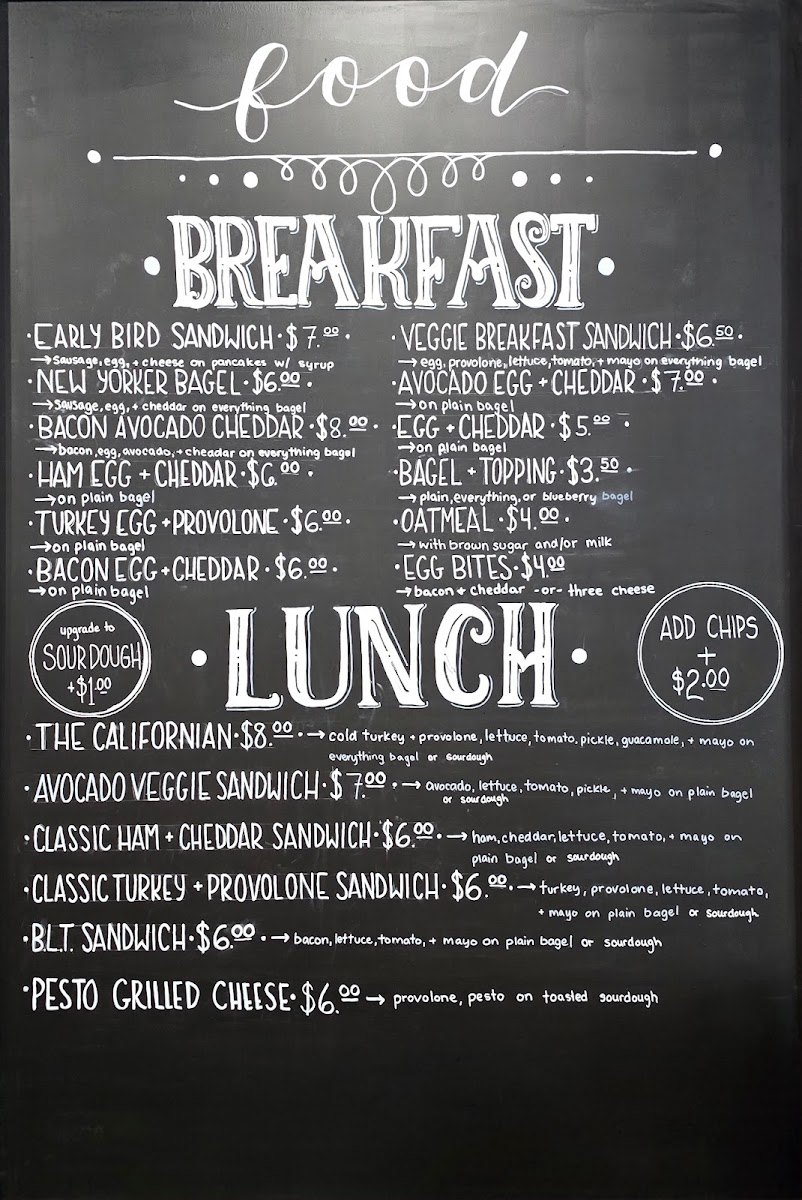 food
BREAKFAST
·EARLY BIRD SANDWICH·$7.00·
→sausage, egg, + cheese on pancakes w/ syrup
·NEW YORKER BAGEL·$6.00·
→sausage, egg, + cheddar on everything bagel
·BACON AVOCADO CHEDDAR·$8.00·
→bacon, egg, avocado, + cheddar on everything bagel
·HAM EGG + CHEDDAR·$6.00·
→on plain bagel
·TURKEY EGG + PROVOLONE·$6.00·
→on plain bagel
·BACON EGG + CHEDDAR·$6.00·
→on plain bagel
·VEGGIE BREAKFAST SANDWICH·$6.50·
→egg, provolone, lettuce, tomato, + mayo on everything bagel
·AVOCADO EGG + CHEDDAR·$7.00·
→on plain bagel
·EGG + CHEDDAR·$5.00·
→on plain bagel
·BAGEL + TOPPING·$3.50·
→plain, everything, or blueberry bagel
·OATMEAL·$4.00·
→with brown sugar and/or milk
·EGG BITES·$4.00
→bacon + cheddar -or- three cheese
upgrade to
SOURDOUGH
+$1.00
·LUNCH·
ADD CHIPS
+
$2.00
·THE CALIFORNIAN·$8.00·→cold turkey + provolone, lettuce, tomato. pickle, guacamole, + mayo on
everything bagel or sourdough
·AVOCADO VEGGIE SANDWICH·$7.00·→avocado, lettuce, tomato, pickle, + mayo on plain bagel
or sourdough
·CLASSIC HAM + CHEDDAR SANDWICH·$6.00·→ham, cheddar, lettuce, tomato, + mayo on
plain bagel or sourdough
·CLASSIC TURKEY + PROVOLONE SANDWICH·$6.00·→turkey, provolone, lettuce, tomato,
+ mayo on plain bagel or sourdough
·B.L.T. SANDWICH·$6.00·→bacon, lettuce, tomato, + mayo on plain bagel or sourdough
·PESTO GRILLED CHEESE·$6.00→provolone, pesto on toasted sourdough